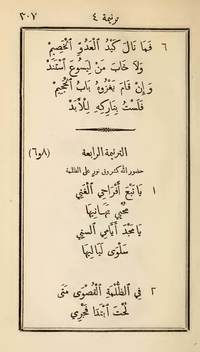 ترنيمة ٤
٣٠٧
٦ فَمَا نَالَ كَيْدُ ٱلْعَدُوِّ ٱلْخَصِيمْ
وَلَا خَابَ مَنْ لِيَسُوعَ ٱسْتَنَدْ
وَإِنْ قَامَ يَغْزُوهُ بَابُ ٱلْجَحِيمْ
فَلَسْتُ بِتَارِكِهِ لِلْأَبَدْ
الترنيمة الرابعة (٨و٦)
حضور الله كشروق نور على الظلمة
١ يَا نَبْعَ أَفْرَاحِي ٱلْغَنِي
مُحْيِي تَهَانِيهَا
يَا مَجْدَ أَيَّامِي ٱلسَّنِي
سَلْوَى لَيَالِيهَا
٢ فِي ٱلظُّلْمَةِ ٱلْقُصْوَى مَتَى
لُحْتَ ٱبْتَدَا فَجْرِي